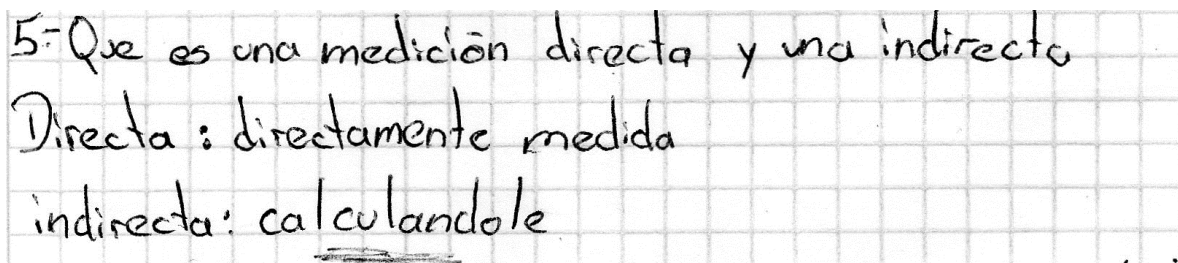 5- Que es una medición directa y una indirecta
Directa: directamente medida
indirecta: calculandole